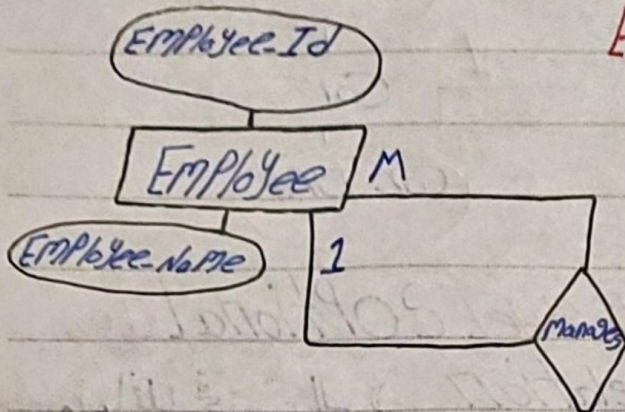 EMPloyee_Id
EMPloyee
M
EMPloyee_NaMe
1
Manages